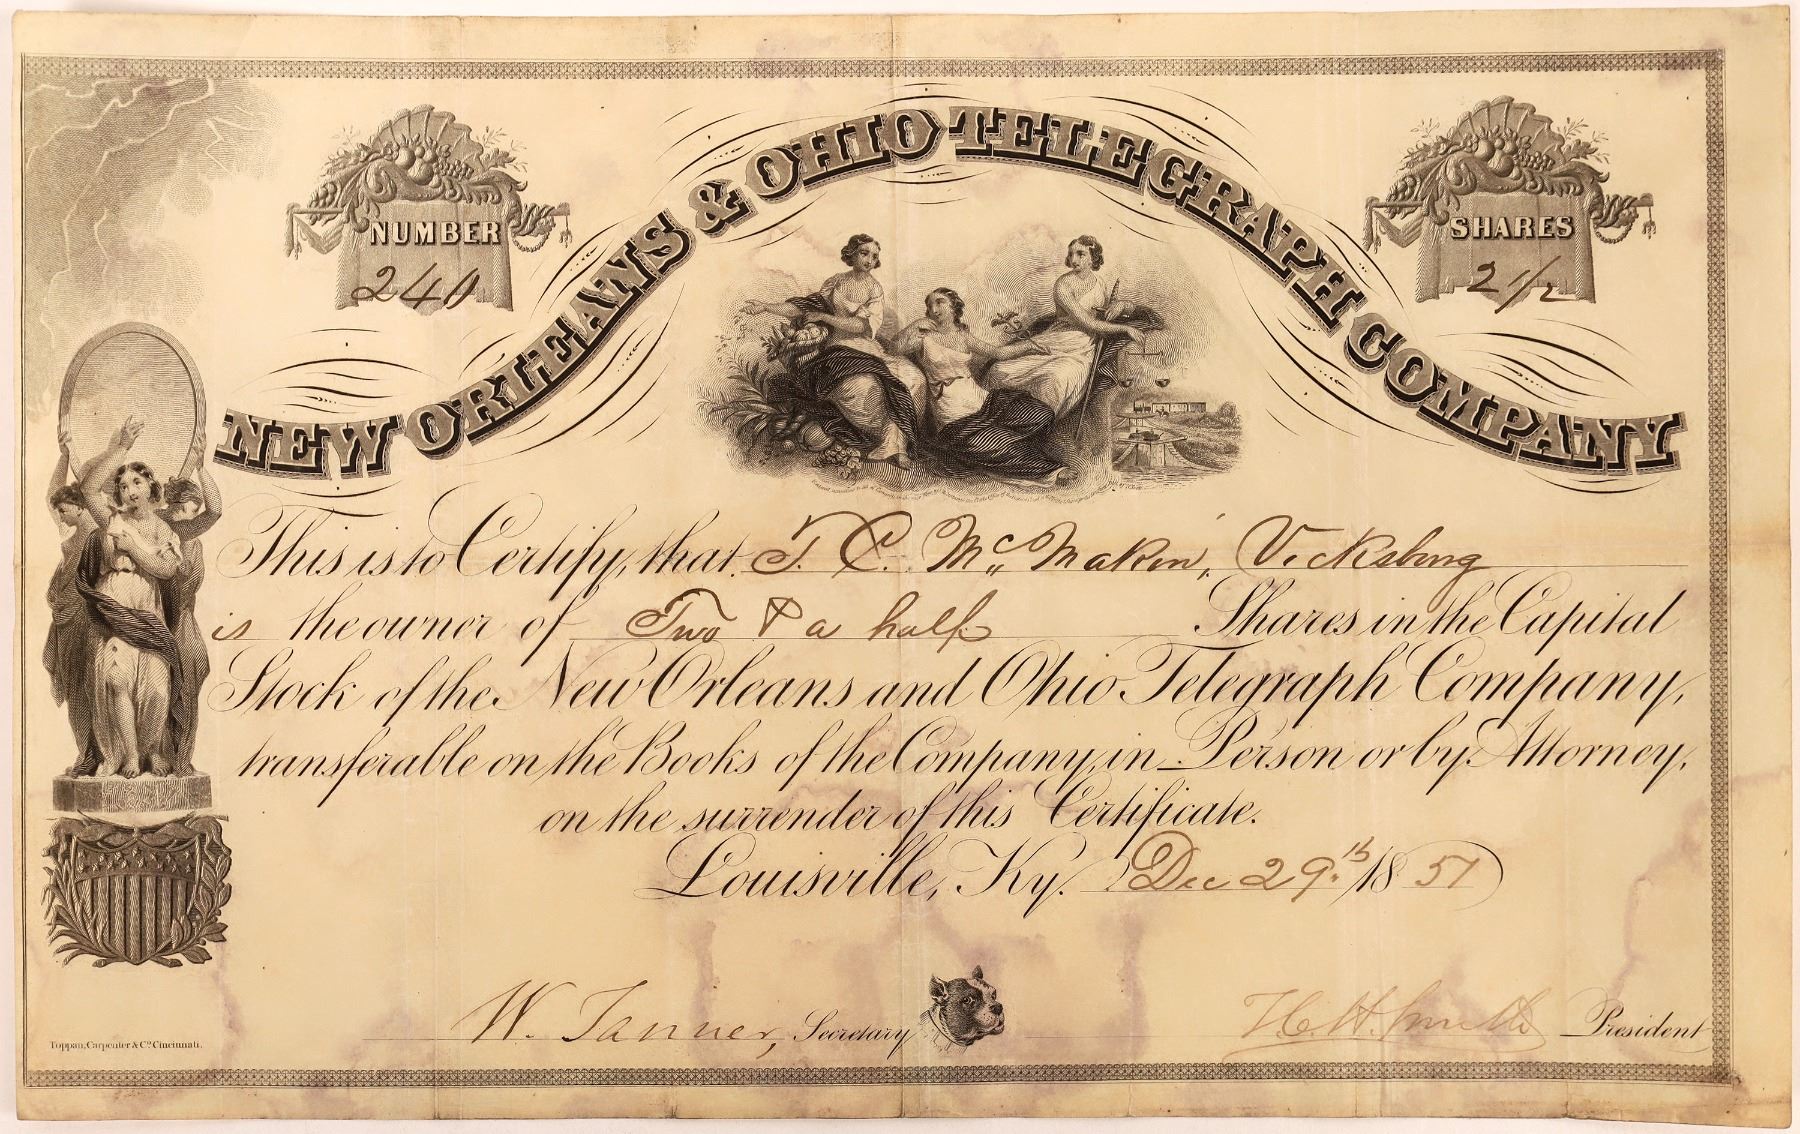 NEW ORLEANS & OHIO TELEGRAPH COMPANY
NUMBER
240
SHARES
2 1/2
This is to Certify, that T. C. McMakin, Vicksburg
is the owner of Two & a half Shares in the Capital
Stock of the New Orleans and Ohio Telegraph Company,
transferable on the Books of the Company, in Person or by Attorney,
on the surrender of this Certificate.
Louisville, Ky. Dec 29th 1857
W. Tanner, Secretary
Smith President
Toppan, Carpenter & Co. Cincinnati.